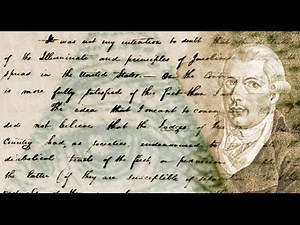 It was not my intention to doubt that
of the Illuminati and principles of Jacobin
spread in the United States - On the
is more fully satisfied of this fact than I
The idea that I meant to
did not believe that the Lodges of
Country had, as societies endeavoured to
diabolical tenets of the first, or
the latter (if they are susceptible of